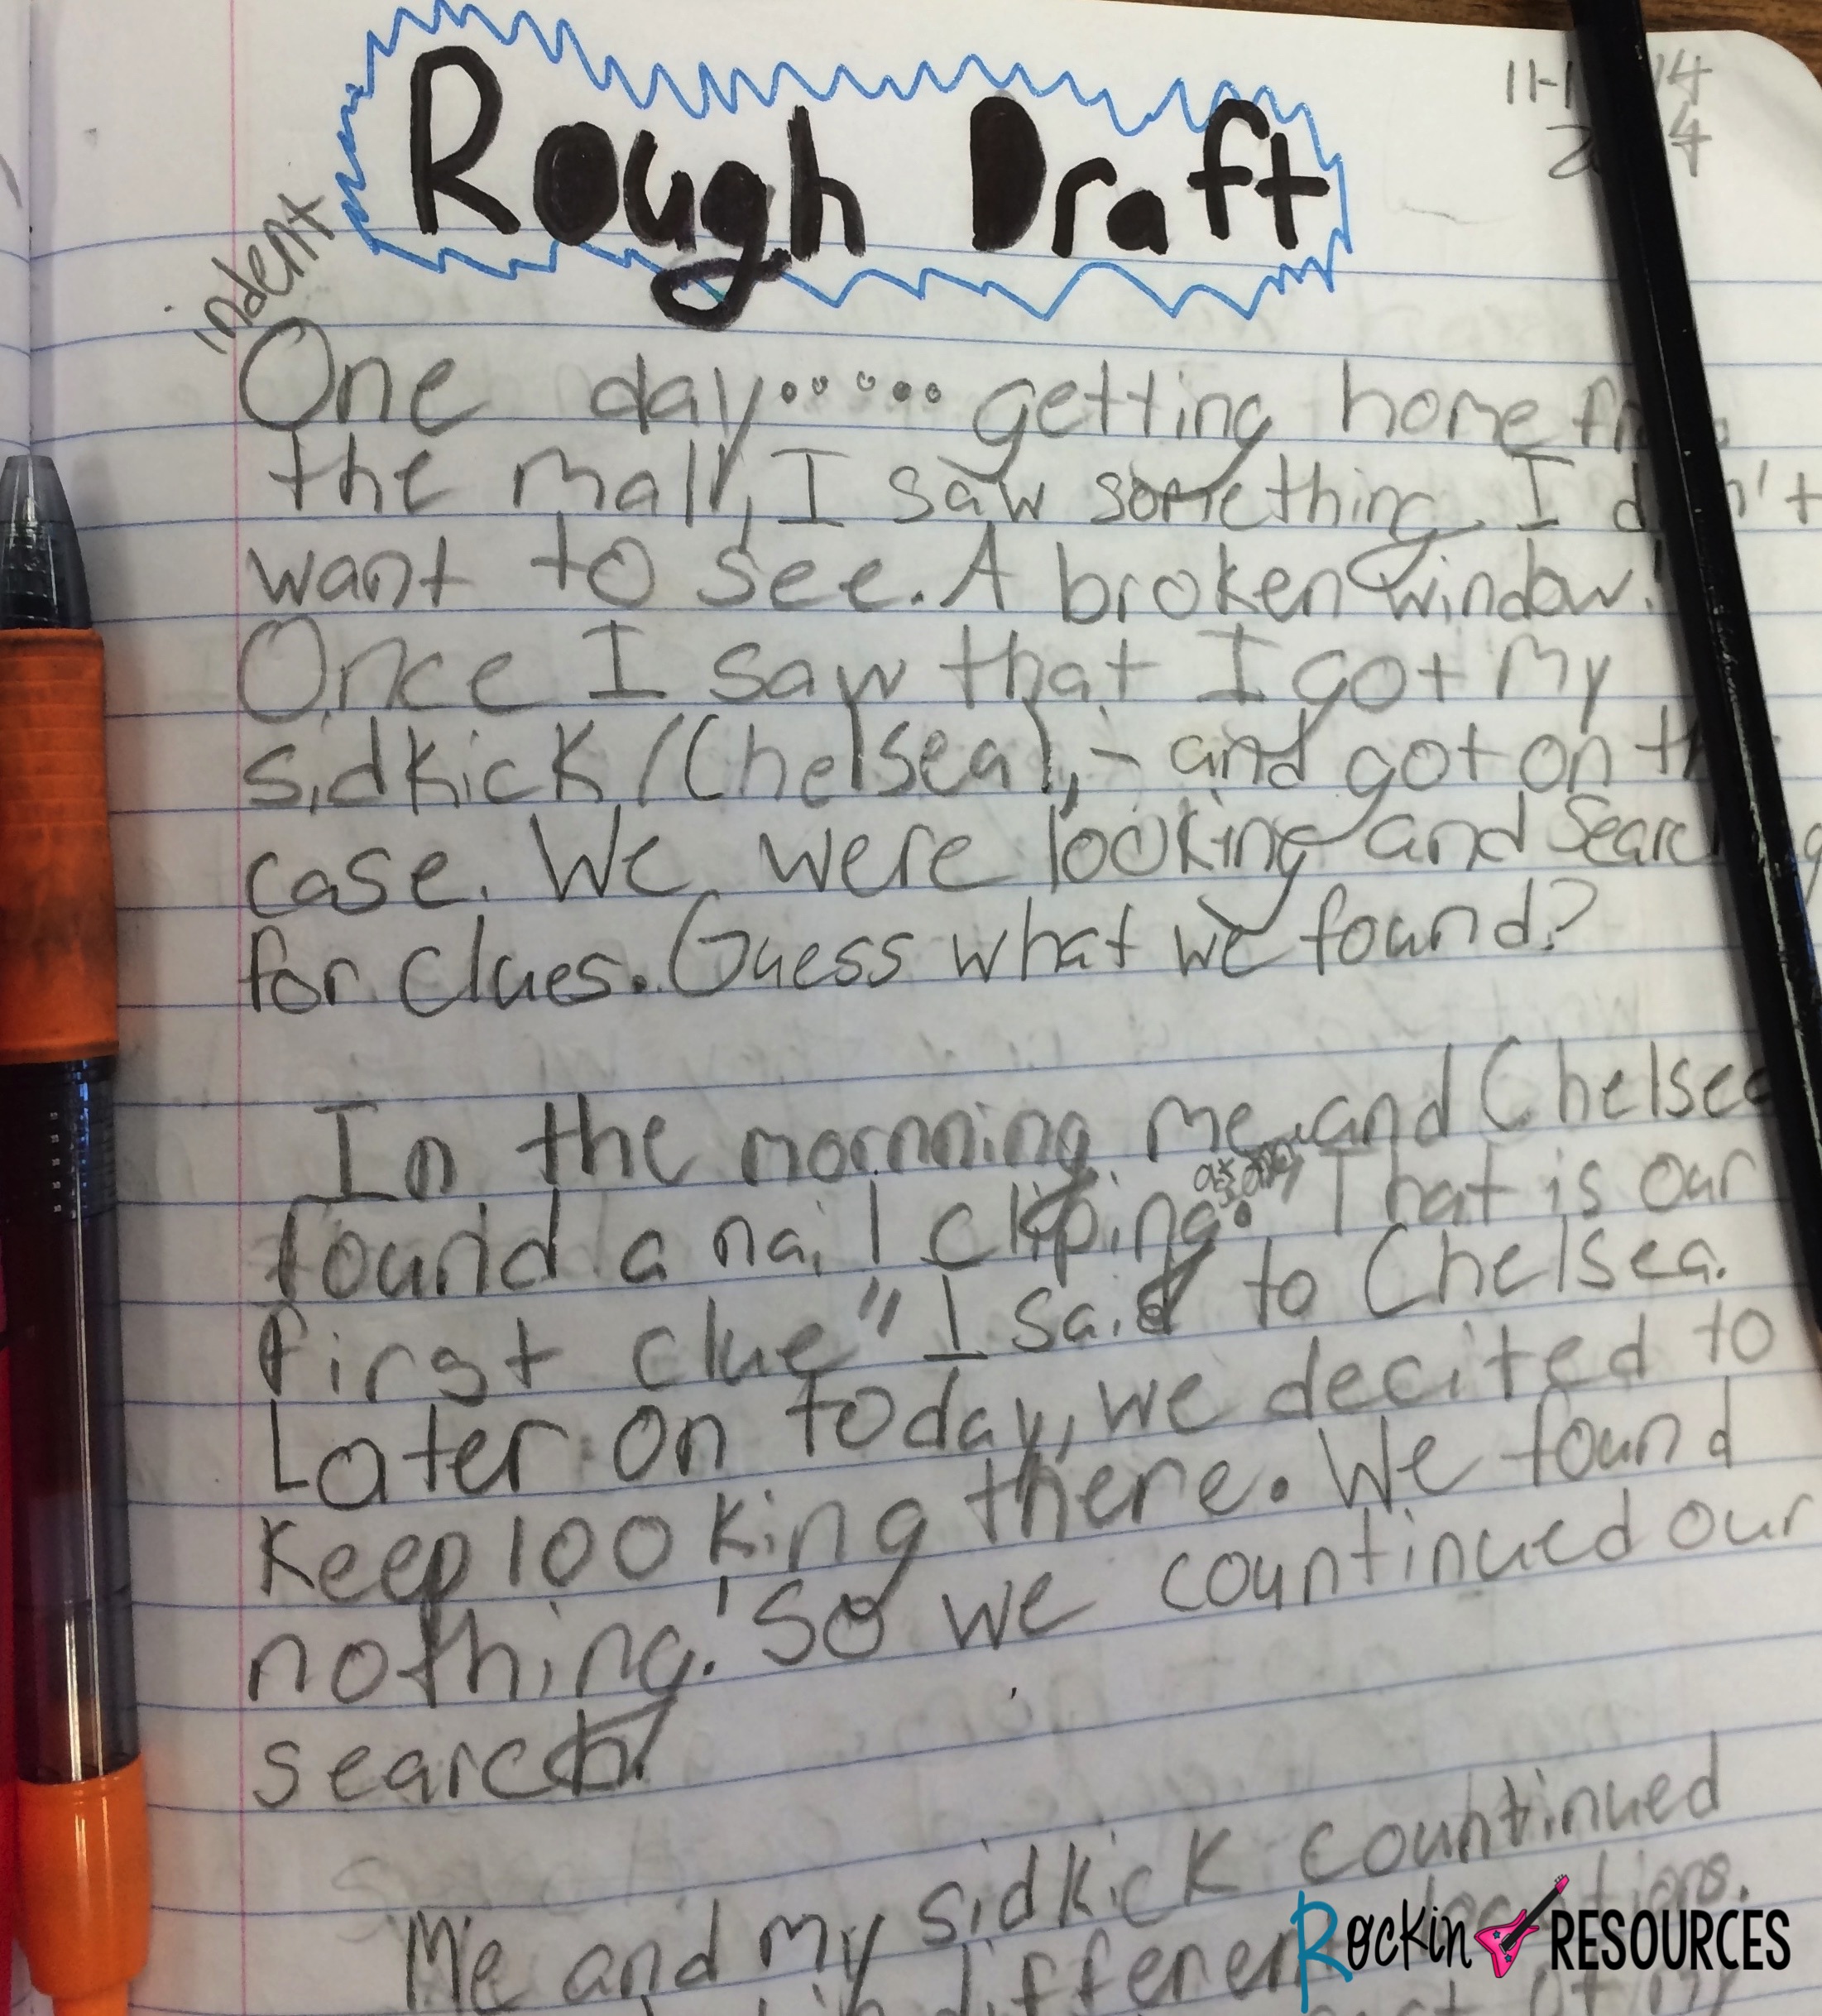 Rough Draft
indent
One day...... getting home
the mall, I saw something I
want to see. A broken window!
Once I saw that I got my
sidkick (Chelsea), - and got on
case. We were looking and
for clues. Guess what we found?
In the mornning me and Chelsea
found a nail cliping. "That is our
first clue" I said to Chelsea.
Later on today, we decited to
Keep looking there. We found
nothing! So we countinued our
search!
Me and my sidkick countinued
Rockin RESOURCES